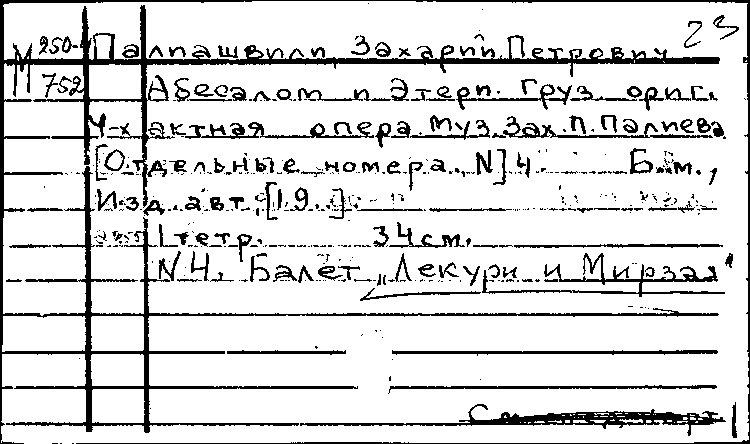 23
М 250-4 Палиашвили, Захарий Петрович
752 Абесалом и Этери. Груз. ориг.
4-х актная опера. Муз. Зах. П. Палиева
[Отдельные номера. N] 4. Б.м.,
Изд. авт., [19. ].
1 тетр. 34 см.
N 4. Балет „Лекури и Мирзая"